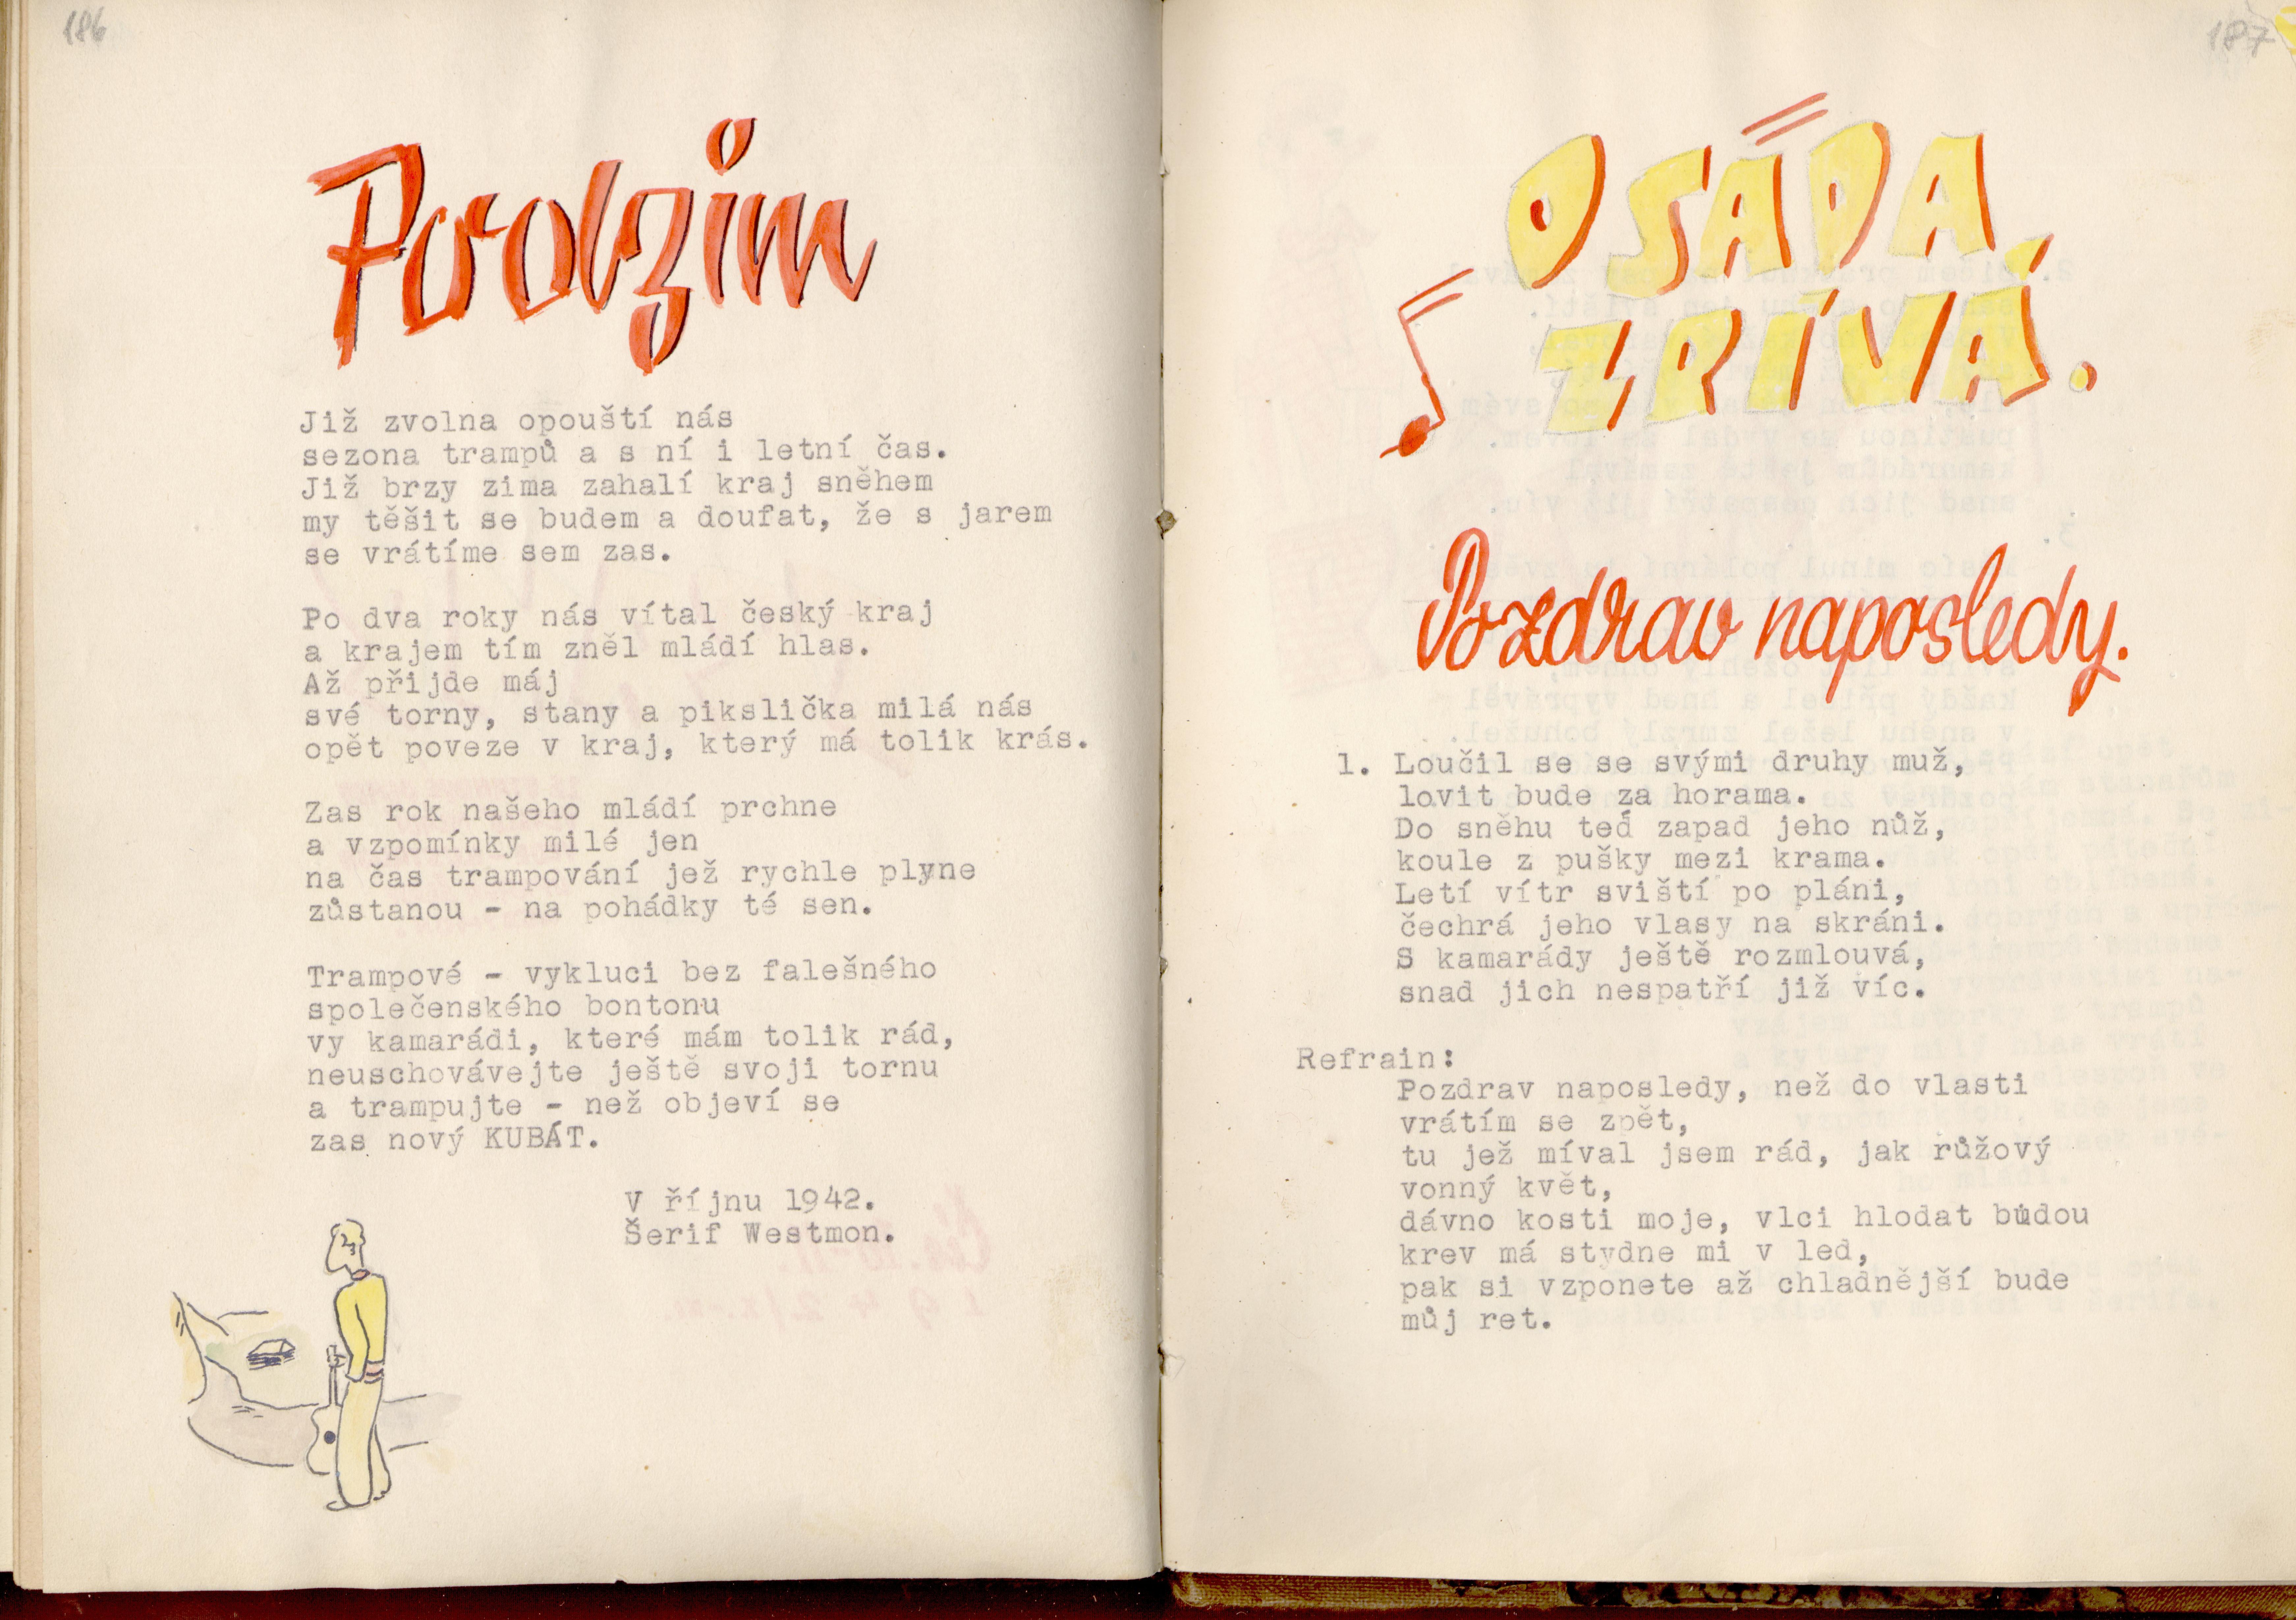 186
Podzim
Již zvolna opouští nás
sezona trampů a s ní i letní čas.
Již brzy zima zahalí kraj sněhem
my těšit se budem a doufat, že s jarem
se vrátíme sem zas.
Po dva roky nás vítal český kraj
a krajem tím zněl mládí hlas.
Až přijde máj
své torny, stany a pikslička milá nás
opět poveze v kraj, který má tolik krás.
Zas rok našeho mládí prchne
a vzpomínky milé jen
na čas trampování jež rychle plyne
zůstanou - na pohádky té sen.
Trampové - vykluci bez falešného
společenského bontonu
vy kamarádi, které mám tolik rád,
neuschovávejte ještě svoji tornu
a trampujte - než objeví se
zas nový KUBÁT.
V říjnu 1942.
Šerif Westmon.
187
OSADA
ZPÍVÁ.
Pozdrav naposledy.
1. Loučil se se svými druhy muž,
lovit bude za horama.
Do sněhu teď zapad jeho nůž,
koule z pušky mezi krama.
Letí vítr sviští po pláni,
čechrá jeho vlasy na skráni.
S kamarády ještě rozmlouvá,
snad jich nespatří již víc.
Refrain:
Pozdrav naposledy, než do vlasti
vrátím se zpět,
tu jež míval jsem rád, jak růžový
vonný květ,
dávno kosti moje, vlci hlodat budou
krev má stydne mi v led,
pak si vzponete až chladnější bude
můj ret.